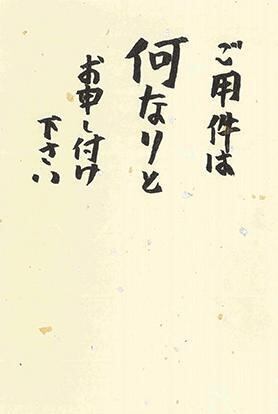 ご用件は
何なりと
お申し付け
下さい